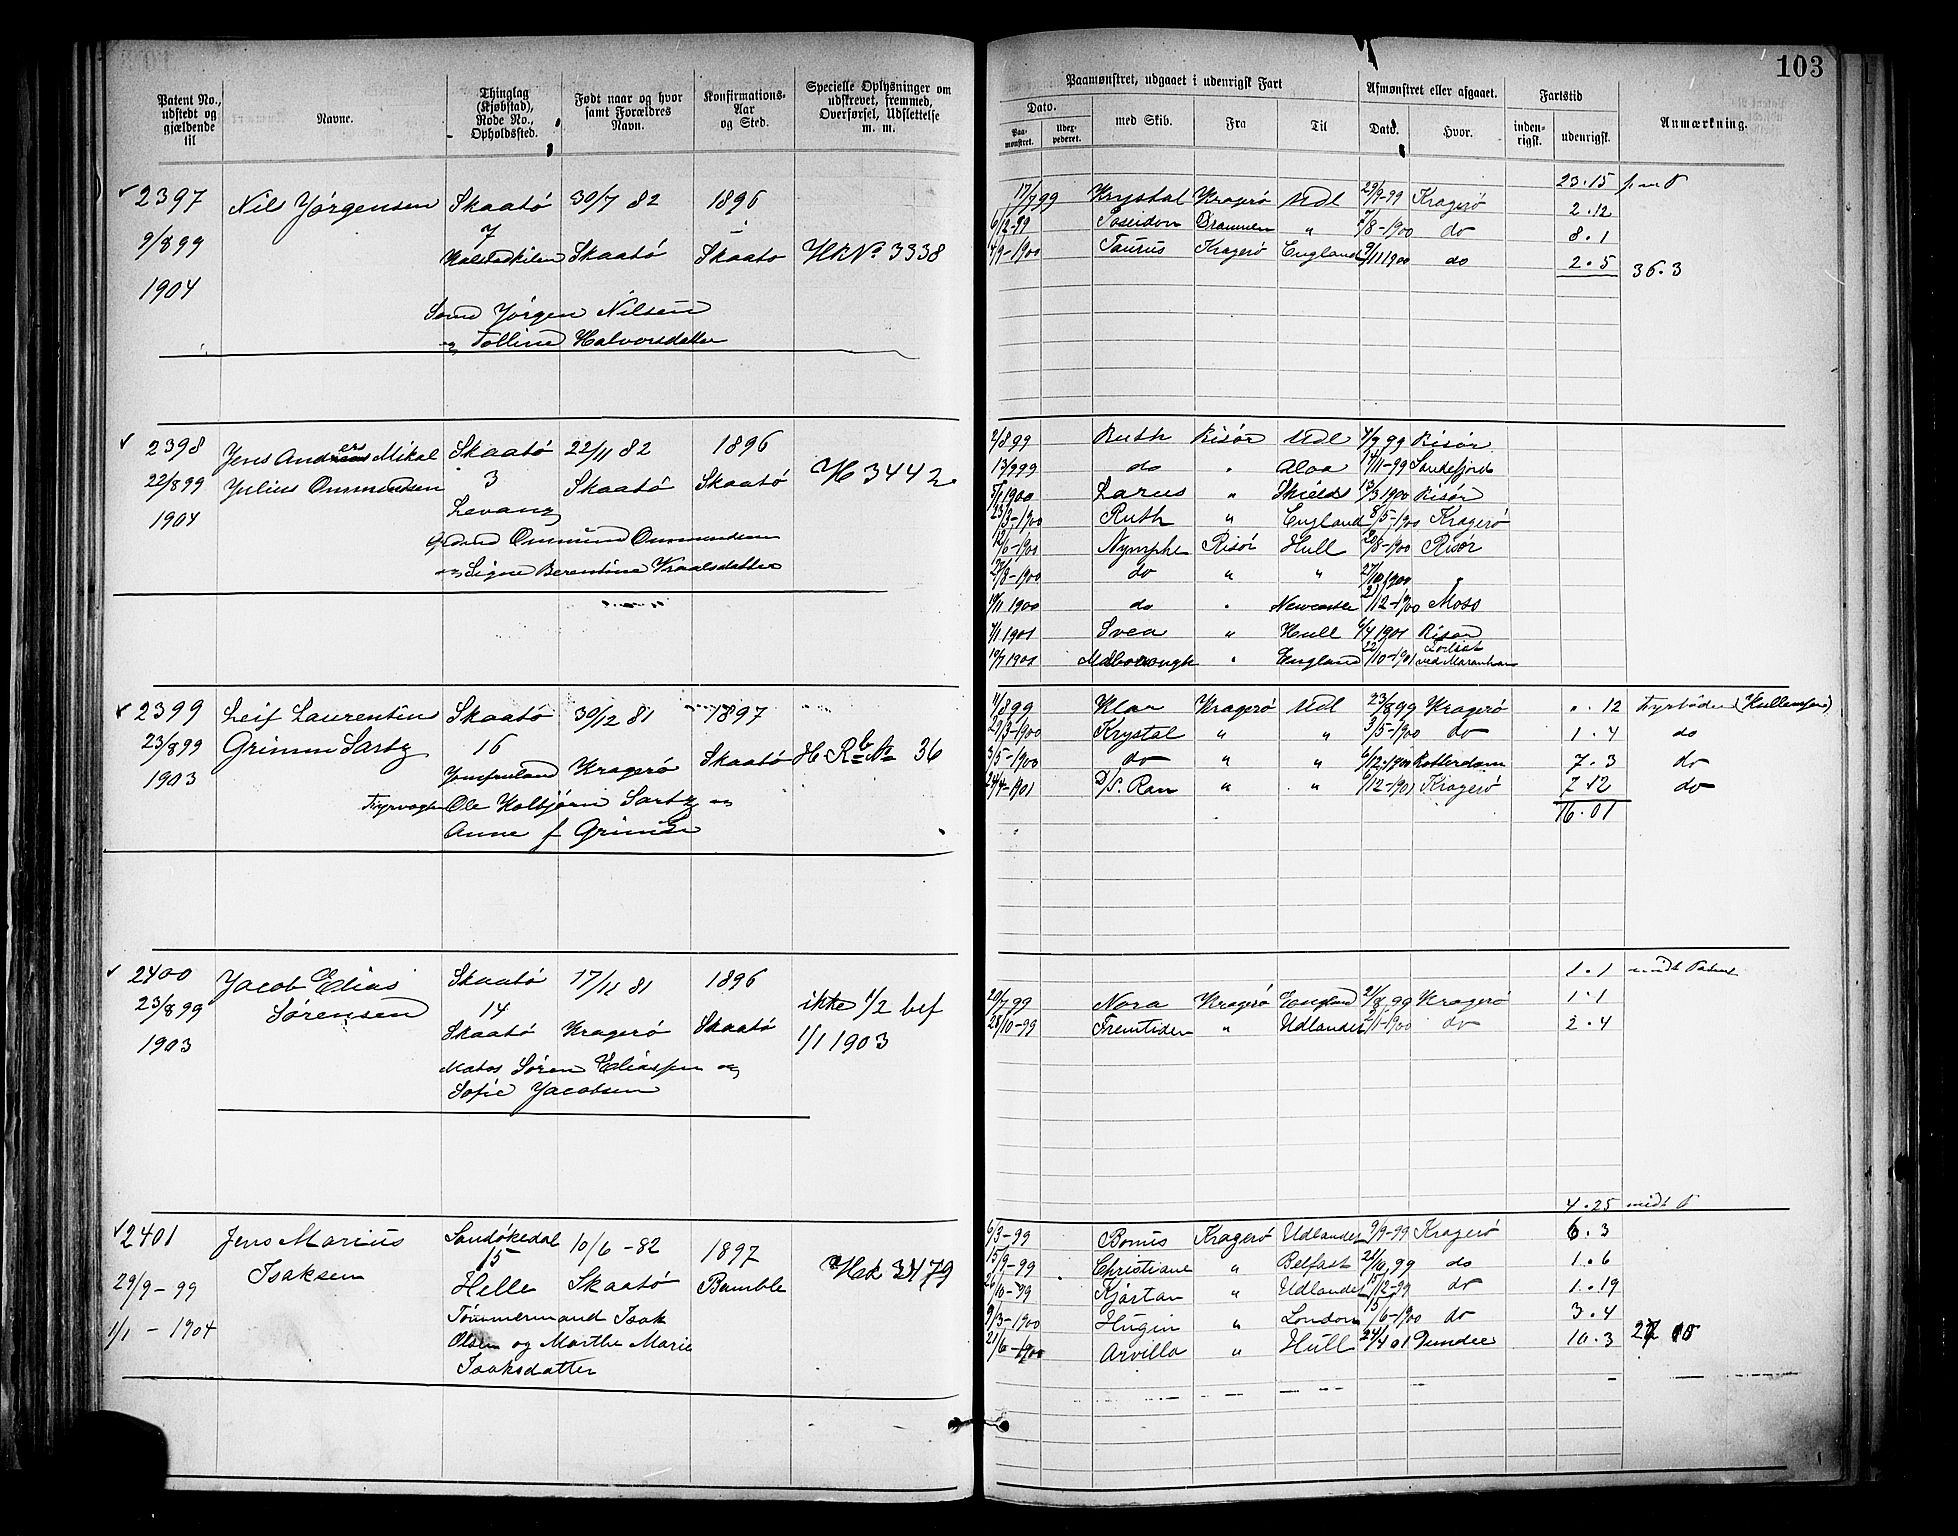 103
Patent No., udstedt og gjældende til
Navne.
Thinglag (Kjøbstad), Rode No., Opholdssted.
Født naar og hvor samt Forældres Navn.
Konfirmations-Aar og Sted.
Specielle Oplysninger om udskrevet, fremmed, Overførsel, Udslettelse m. m.
Paamønstret, udgaaet i udenrigsk Fart
Afmønstret eller afgaaet.
Fartstid
Dato.
Paa-mønstret.
Udex-pederet.
med Skib.
Fra
Til
Dato.
Hvor.
inden-rigsk.
udenrigsk.
Anmærkning.
2397 Nils Jørgensen Skaatö 30/7 82 1896
9/8 99 7 Skaatö Skaatö Hk No. 3338
1904
Jørgen Nilsen
og Tolline Halvorsdatter
23.15
17/7 99 Krystal Kragerö Udl 29/9-99 Kragerö 2.12
6/12-99 Poseidon Drammen " 7/8-1900 do 8.1
4/9-1900 Taurus Kragerö England 9/11 1900 do 2.5 36.3
2398 Jens Anders Mikal Skaatö 22/11 82 1896
22/8 99 Julius Ommundsen 3 Skaatö Skaatö H 3442
1904 Levang
Ommund Ommundsen
og Signe Berentine Vraalsdatter
2/8 99 Ruth Risör Udl 4/9 99 Risör
13/9 99 do " Aloa 14/11-99 Sandefjord
5/1 1900 Larus " Shields 13/3 1900 Risör
23/3-1900 Ruth " England 8/5-1900 Kragerö
12/6-1900 Nymphe Risör Hull 20/8-1900 Risör
27/8-1900 do " " 27/10 1900 "
19/11 1900 do " Newcastle 21/12-1900 Moss
4/1 1901 Svea " Hull 6/4 1901 Risör
10/7 1901 " England 22/10-1901 Forlist ved Maranham
2399 Leif Laurentin Skaatö 30/12 81 1897
23/8 99 Grimm Sartz 16 Skaatö H Rb No 36
1903 Jomfruland Kragerö
Fyrvogter Ole Kolbjørn Sartz og
Anne f Grimm
11/8 99 Klar Kragerö Udl 23/8 99 Kragerö ". 12 Fyrböder
29/3-1900 Krystal " " 3/5-1900 do 1.4 do
3/5-1900 do " " 6/12-1900 Rotterdam 7.3 do
24/4-1901 D/S. Ran " " 6/12-1901 Kragerö 7.12 do
16.01
2400 Jacob Elias Skaatö 17/11 81 1896
23/8 99 Sørensen 14 ikke 1/2 bef
1903 Skaatö Kragerö Skaatö 1/1 1903
Matros Søren Eliassen og
Sofie Jacobsen
1.1 midt Patent
20/7 99 Nora Kragerö England 21/8 99 Kragerö 1.1
28/10-99 Fremtiden " Udlandet 2/1-1900 do 2.4
4.25 midt P
2401 Jens Marius Sandökedal 10/6-82 1897
Isaksen 15
29/9-99 Helle Skaatö Bamble Hk 3479
1/1-1904 Tømmermand Isak
Olsen og Marthe Marie
Isaksdatter
6/3-99 Bonus Kragerö Udlandet 9/9-99 Kragerö 6.3
15/9-99 Christiane " Belfast 21/10 99 do 1.6
26/10-99 Kjartan " Udlandet 15/12-99 do 1.19
9/3-1900 Hugin " London 15/6-1900 do 3.4
21/6-1900 Arvilla " Hull 24/4 01 Dundee 10.3